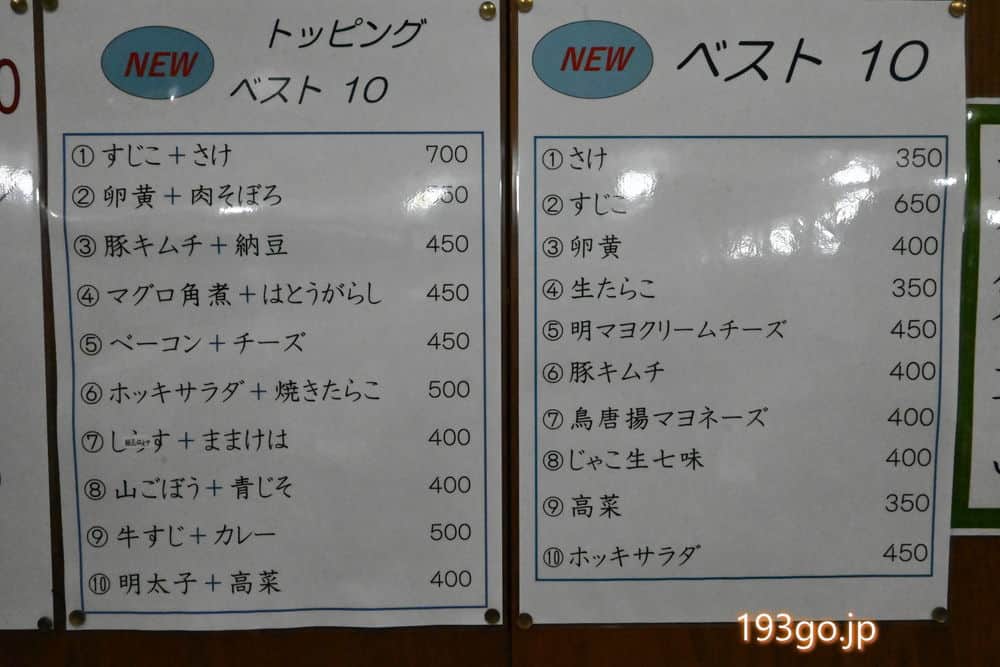 NEW
トッピング
ベスト 10
① すじこ＋さけ 700
② 卵黄＋肉そぼろ 50
③ 豚キムチ＋納豆 450
④ マグロ角煮＋はとうがらし 450
⑤ ベーコン＋チーズ 450
⑥ ホッキサラダ＋焼きたらこ 500
⑦ しらす＋ままけは 400
⑧ 山ごぼう＋青じそ 400
⑨ 牛すじ＋カレー 500
⑩ 明太子＋高菜 400
NEW
ベスト 10
① さけ 350
② すじこ 650
③ 卵黄 400
④ 生たらこ 350
⑤ 明マヨクリームチーズ 450
⑥ 豚キムチ 400
⑦ 鳥唐揚マヨネーズ 400
⑧ じゃこ生七味 400
⑨ 高菜 350
⑩ ホッキサラダ 450
193go.jp